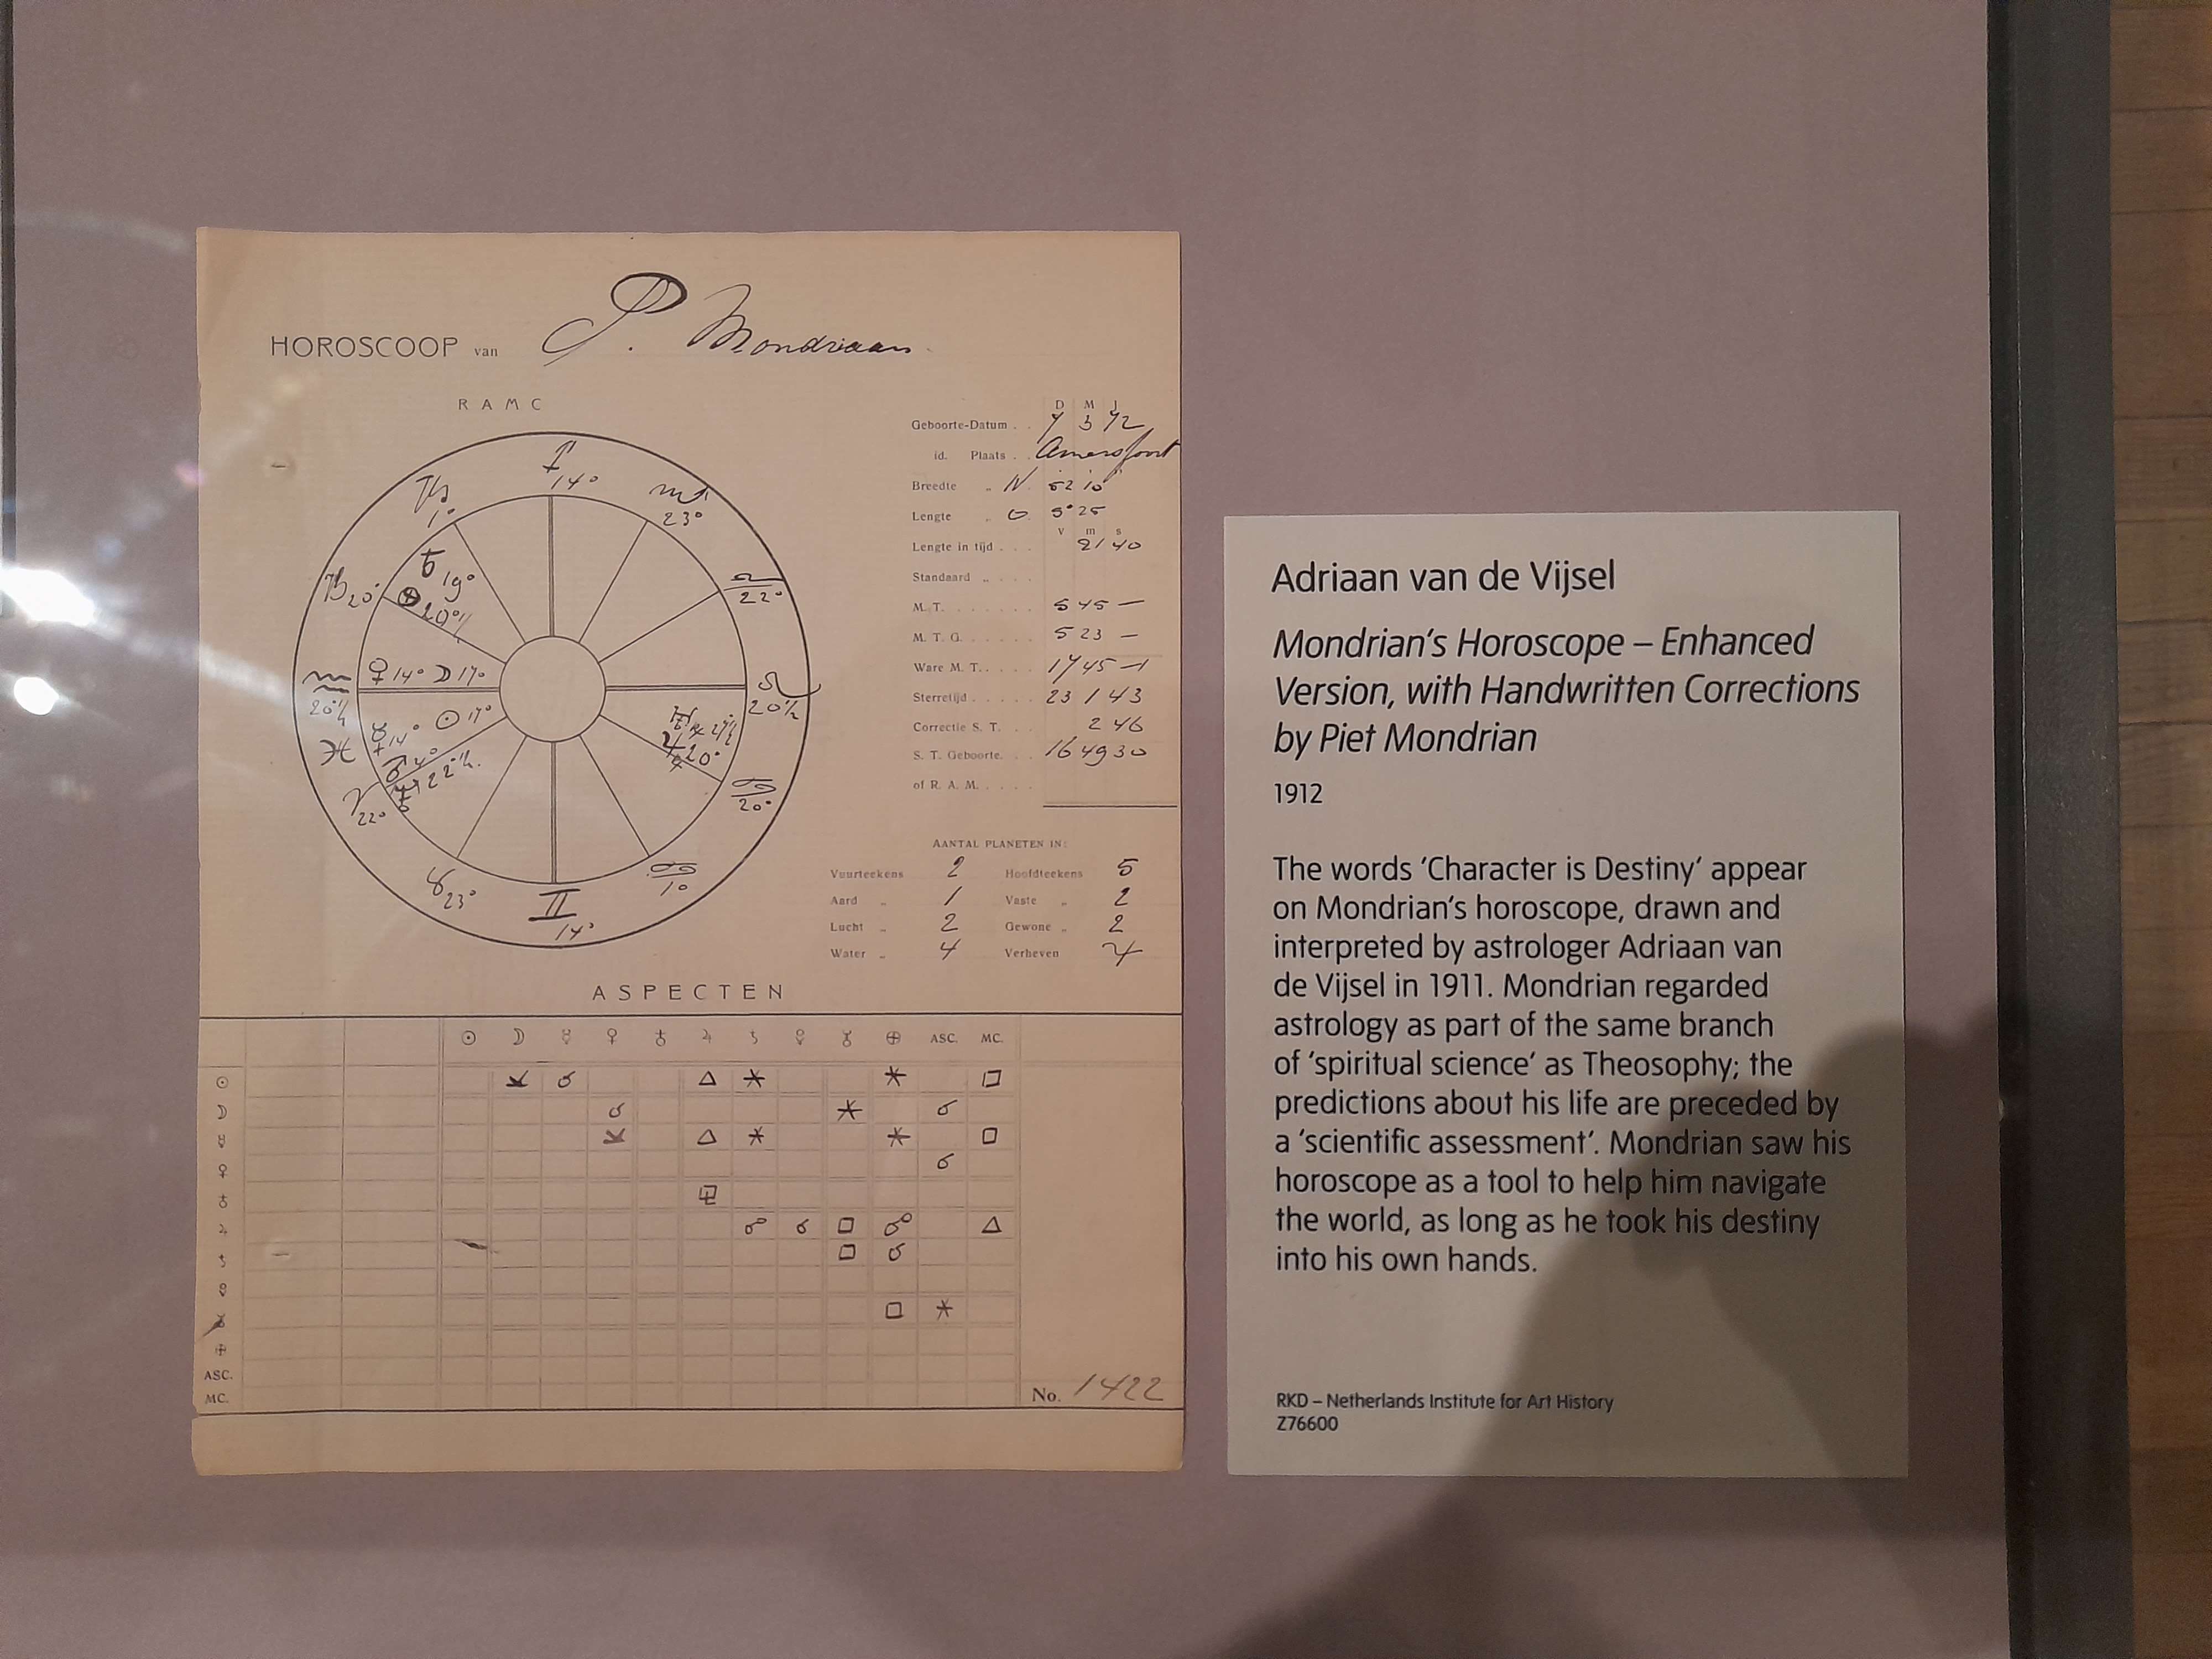 HOROSCOOP van P. Mondriaan
RAMC
♐ 14°
♏ 23°
♎ 22°
♌ 20½
♋ 20°
♋ 1°
♊ 14°
♉ 23°
♈ 22°
♓
♒ 20½
♑ 20°
♑ 1°
♄ 19°
⊕ 20°½
♀ 14° ☽ 17°
☿ 14° ☉ 17°
♂ 4°
♃ 20°
D M J
Geboorte-Datum . . 7 3 72
id. Plaats . . Amersfoort
Breedte „ N. 52 10
Lengte „ O. 5° 25
v m s
Lengte in tijd . . . 21 40
Standaard „ . . . .
M. T. . . . . . . 5 45 —
M. T. G. . . . . . 5 23 —
Ware M. T. . . . . 17 45 —1
Sterretijd . . . . . 23 1 43
Correctie S. T. . . 2 46
S. T. Geboorte. . . 16 49 30
of R. A. M. . . . .
AANTAL PLANETEN IN:
Vuurteekens 2 Hoofdteekens 5
Aard „ 1 Vaste „ 2
Lucht „ 2 Gewone „ 2
Water „ 4 Verheven ♃
ASPECTEN
☉ ☽ ☿ ♀ ♁ ♃ ♄ ⊕ ASC. MC.
☉ ☌ △ ⚹ ⚹ □
☽ ☌ ⚹ ☌
☿ △ ⚹ ⚹ □
♀ ☌
♁
♃ ☍ ☌ □ ☍ △
♄ □ ☌
□ ⚹
⊕
ASC.
MC.
No. 1422
Adriaan van de Vijsel
Mondrian's Horoscope – Enhanced
Version, with Handwritten Corrections
by Piet Mondrian
1912
The words 'Character is Destiny' appear
on Mondrian's horoscope, drawn and
interpreted by astrologer Adriaan van
de Vijsel in 1911. Mondrian regarded
astrology as part of the same branch
of 'spiritual science' as Theosophy; the
predictions about his life are preceded by
a 'scientific assessment'. Mondrian saw his
horoscope as a tool to help him navigate
the world, as long as he took his destiny
into his own hands.
RKD – Netherlands Institute for Art History
Z76600